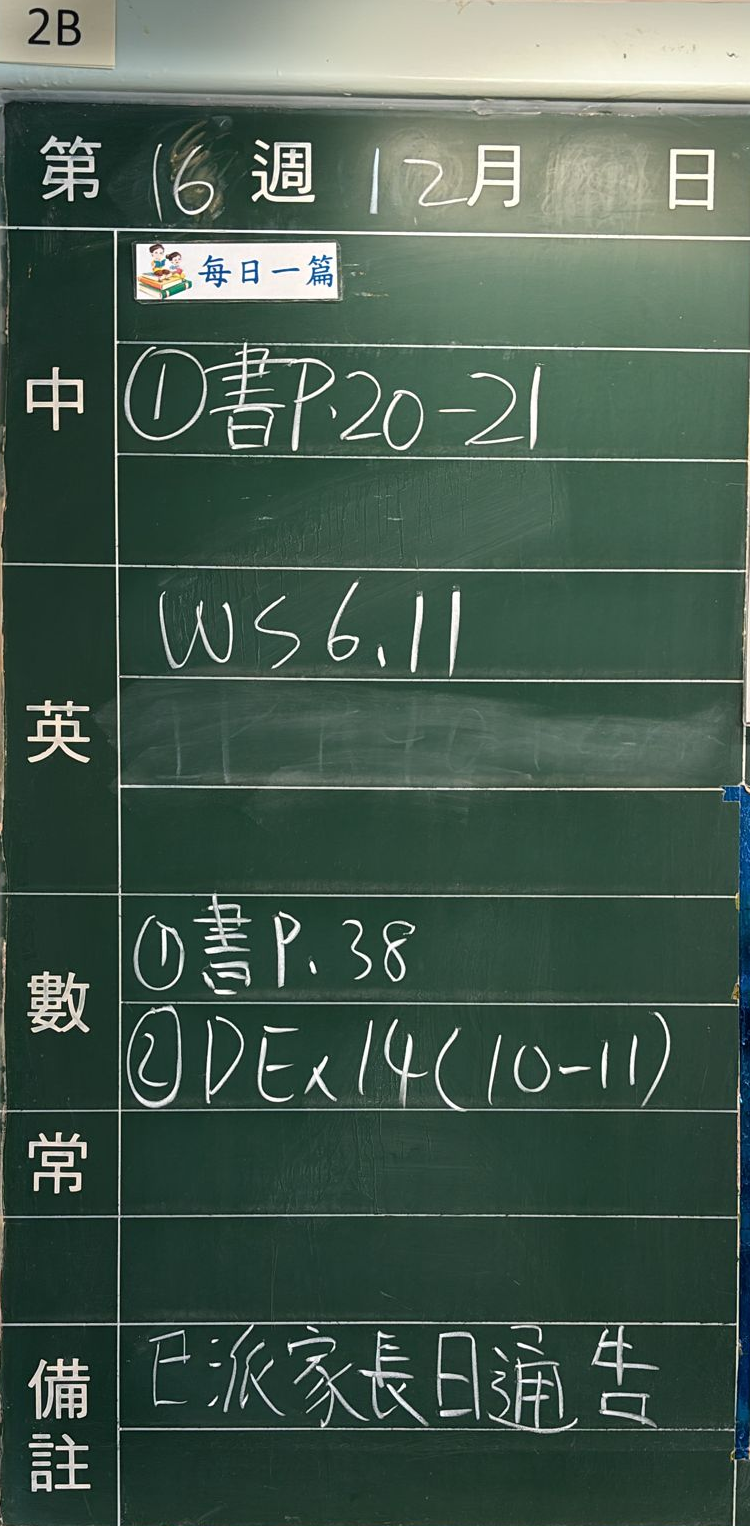 2B
第 16 週 12 月 日
每日一篇
中
①書P.20-21
英
WS 6.11
數
①書P.38
②DEx14(10-11)
常
備註
已派家長日通告